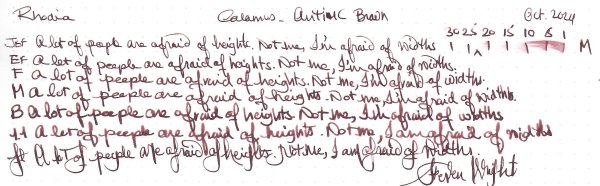 Rhodia Calamus - Antique Brown Oct. 2024
30 25 20 15 10 5 1
JEF A lot of people are afraid of heights. Not me, I'm afraid of widths M
EF A lot of people are afraid of heights. Not me, I'm afraid of widths.
F A lot of people are afraid of heights. Not me, I'm afraid of widths.
M A lot of people are afraid of heights. Not me, I'm afraid of widths.
B A lot of people are afraid of heights. Not me, I'm afraid of widths
A lot of people are afraid of heights. Not me, I am afraid of widths
A lot of people are afraid of heights. Not me, I am afraid of widths.
Steven Wright